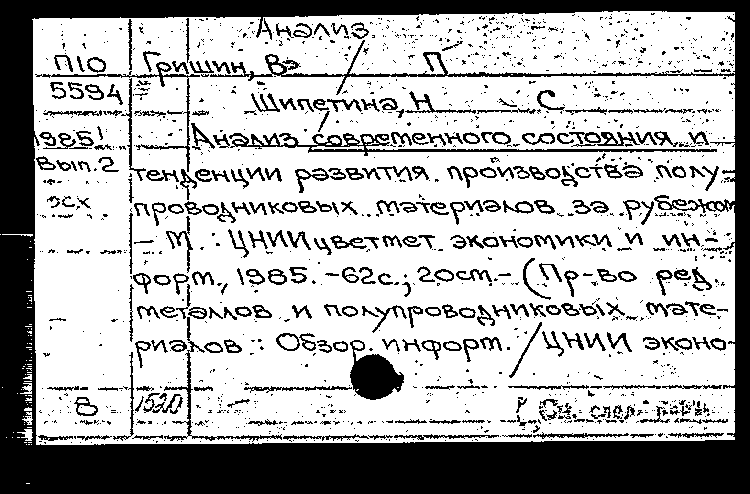 Анализ
П10 Гришин, В П
5594 Шипетина, Н С
1985! Анализ современного состояния и
Вып.2 тенденции развития производства полу-
эсх проводниковых материалов за рубежом
- М. : ЦНИИцветмет экономики и ин-
форм., 1985. -62с.; 20см.- (Пр-во ред.
металлов и полупроводниковых мате-
риалов : Обзор. информ. / ЦНИИ эконо-
8 1520 См. след.